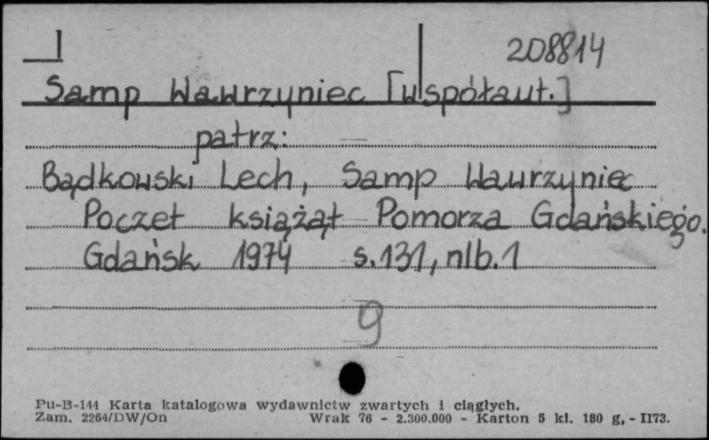 208814
Samp Wawrzyniec [współaut.]
patrz:
Bądkowski Lech, Samp Wawrzyniec
Poczet książąt Pomorza Gdańskiego.
Gdańsk 1974 s.131, nlb.1
9
Pu-B-144 Karta katalogowa wydawnictw zwartych i ciągłych.
Zam. 2264/DW/On Wrak 76 - 2.300.000 - Karton 5 kl. 180 g, - II73.